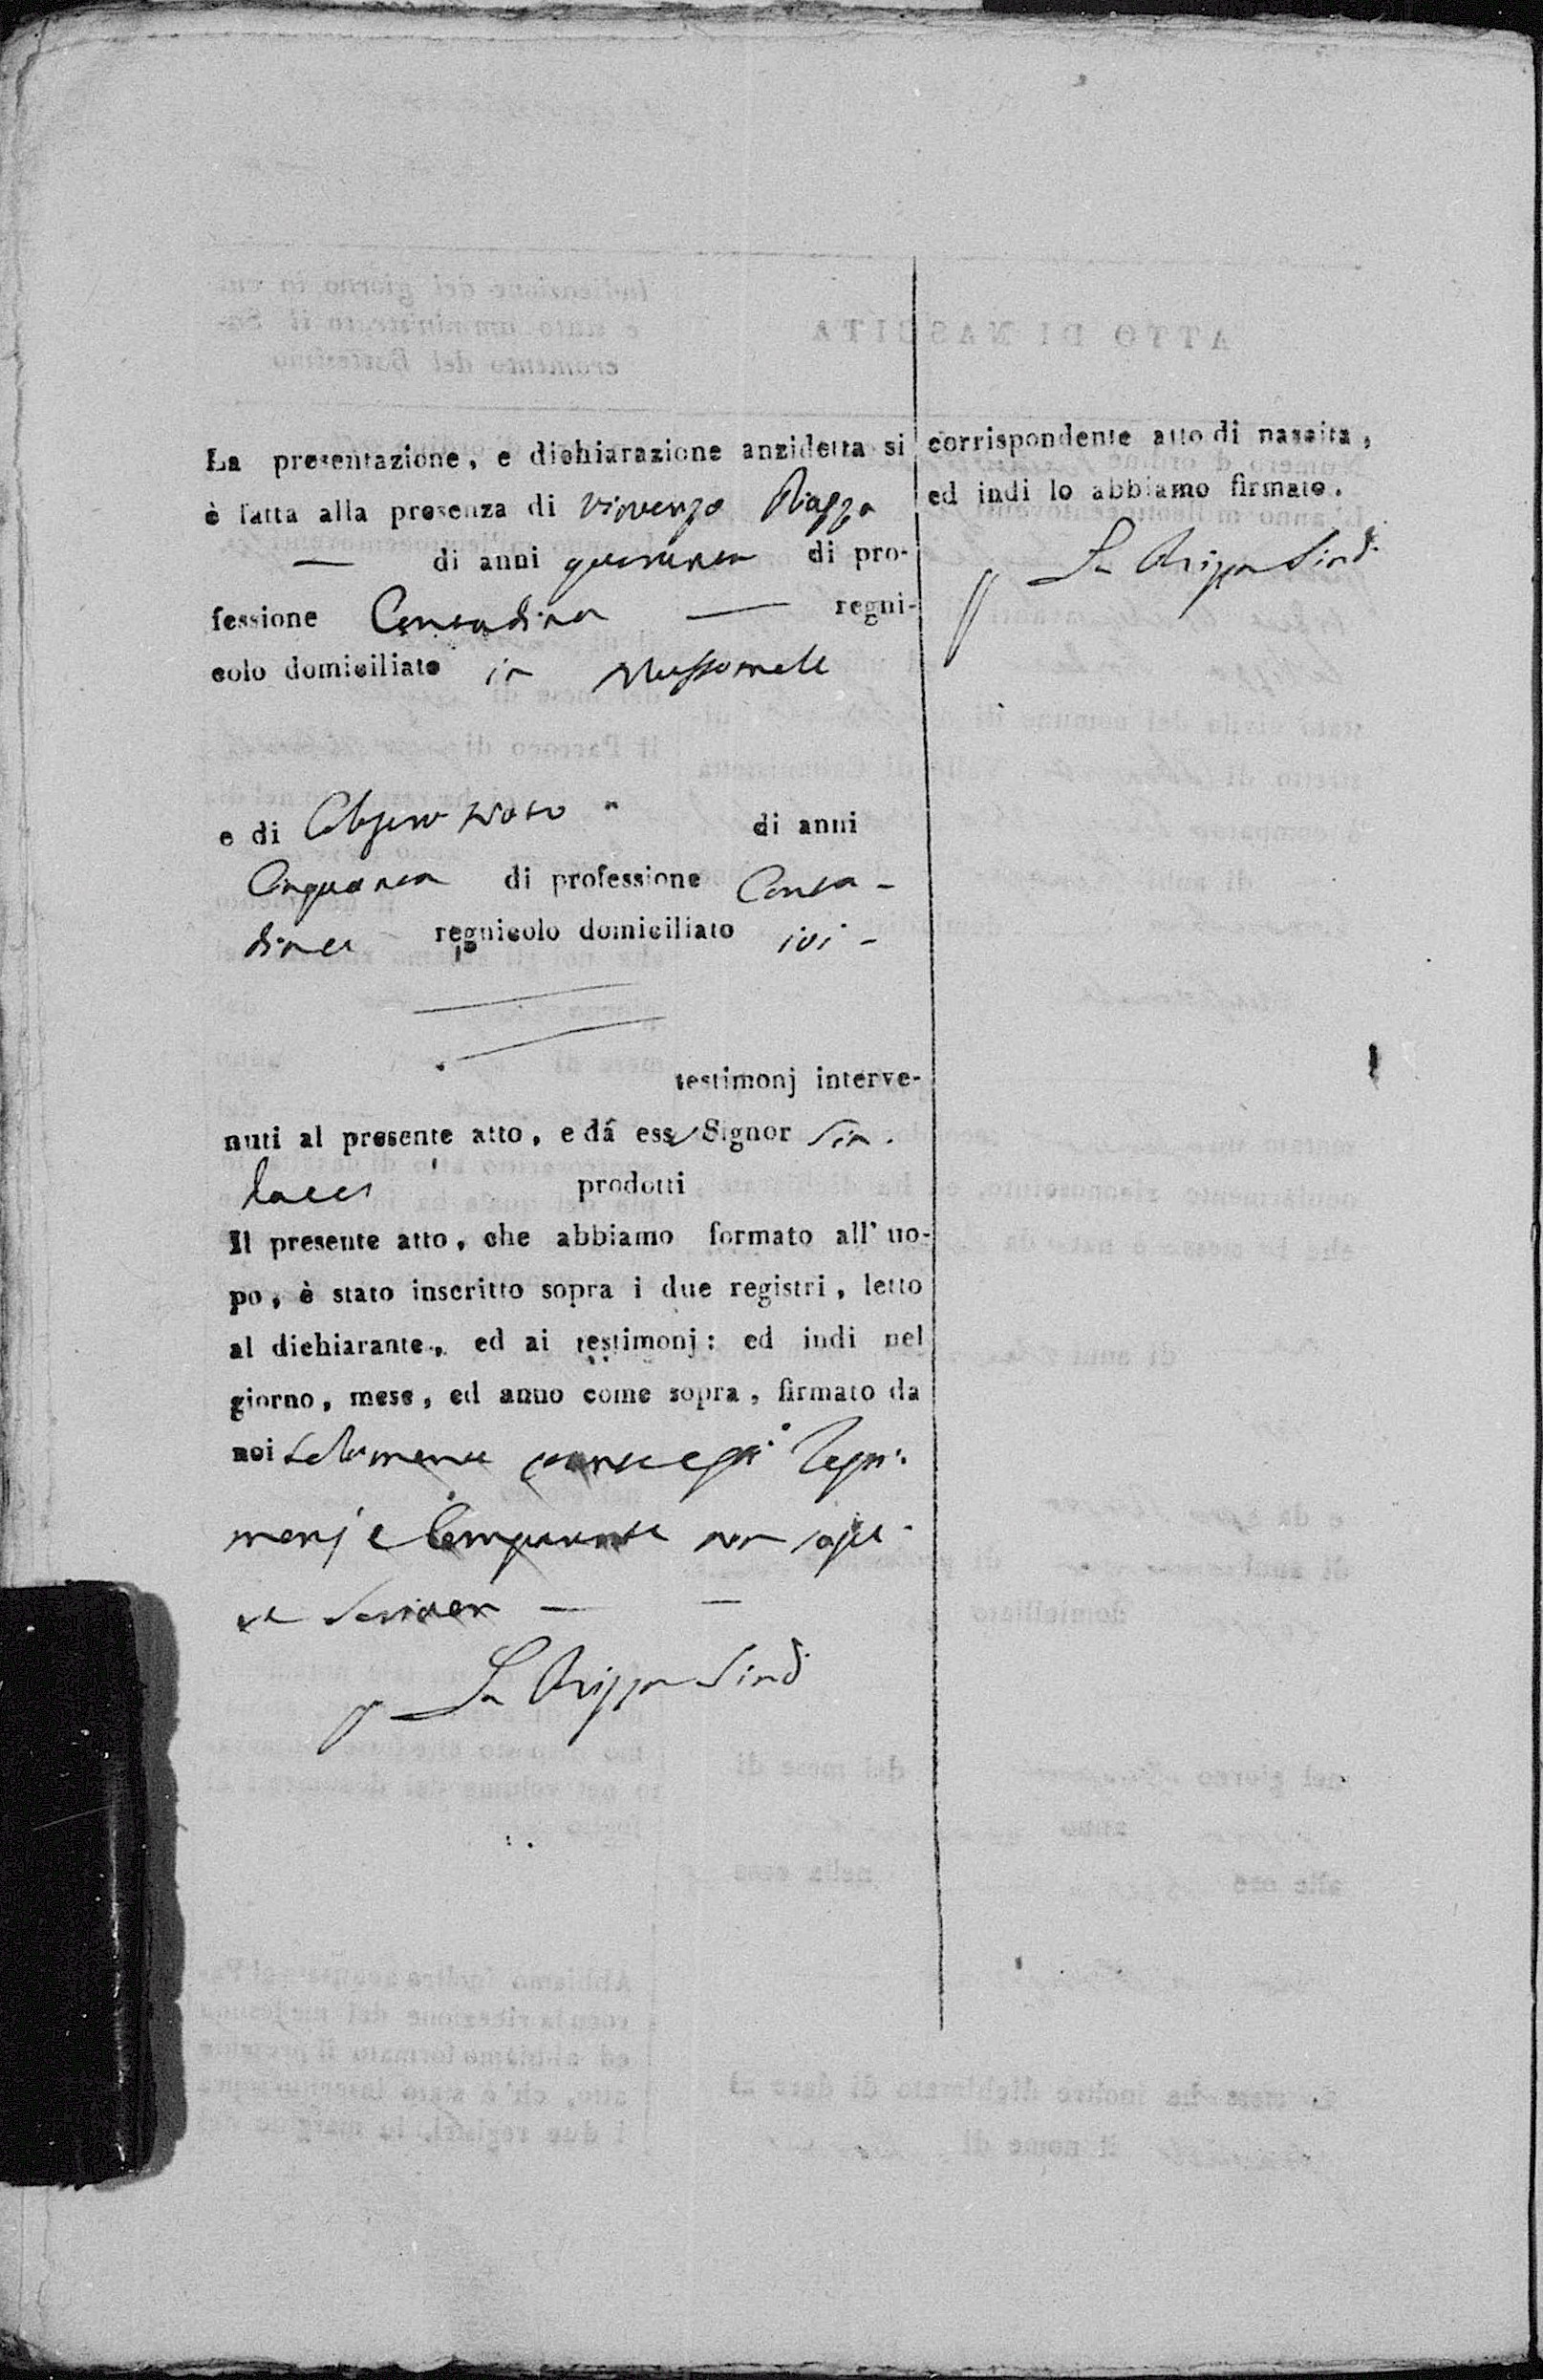 La presentazione, e dichiarazione anzidetta si
è fatta alla presenza di Vincenzo Piazza
— di anni quaranta di pro-
fessione Contadino — regni-
colo domiciliato in Mussomeli
e di Calogero di anni
Cinquanta di professione Conta-
dino regnicolo domiciliato ivi -
testimonj interve-
nuti al presente atto, e dá essi Signor Sin.
daco prodotti
Il presente atto, che abbiamo formato all' uo-
po, è stato inscritto sopra i due registri, letto
al dichiarante, ed ai testimonj: ed indi nel
giorno, mese, ed anno come sopra, firmato da
noi solamente
non
scrivere —
Sind
corrispondente atto di nascita,
ed indi lo abbiamo firmato.
Sind